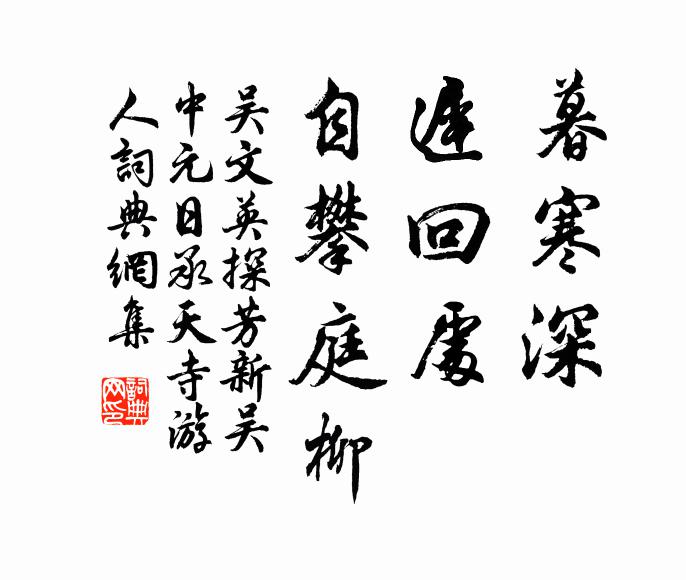 暮寒深
遲回處
自攀庭柳
吳文英探芳新吳
中元日承天寺游
人詞典網集
詞典
网印